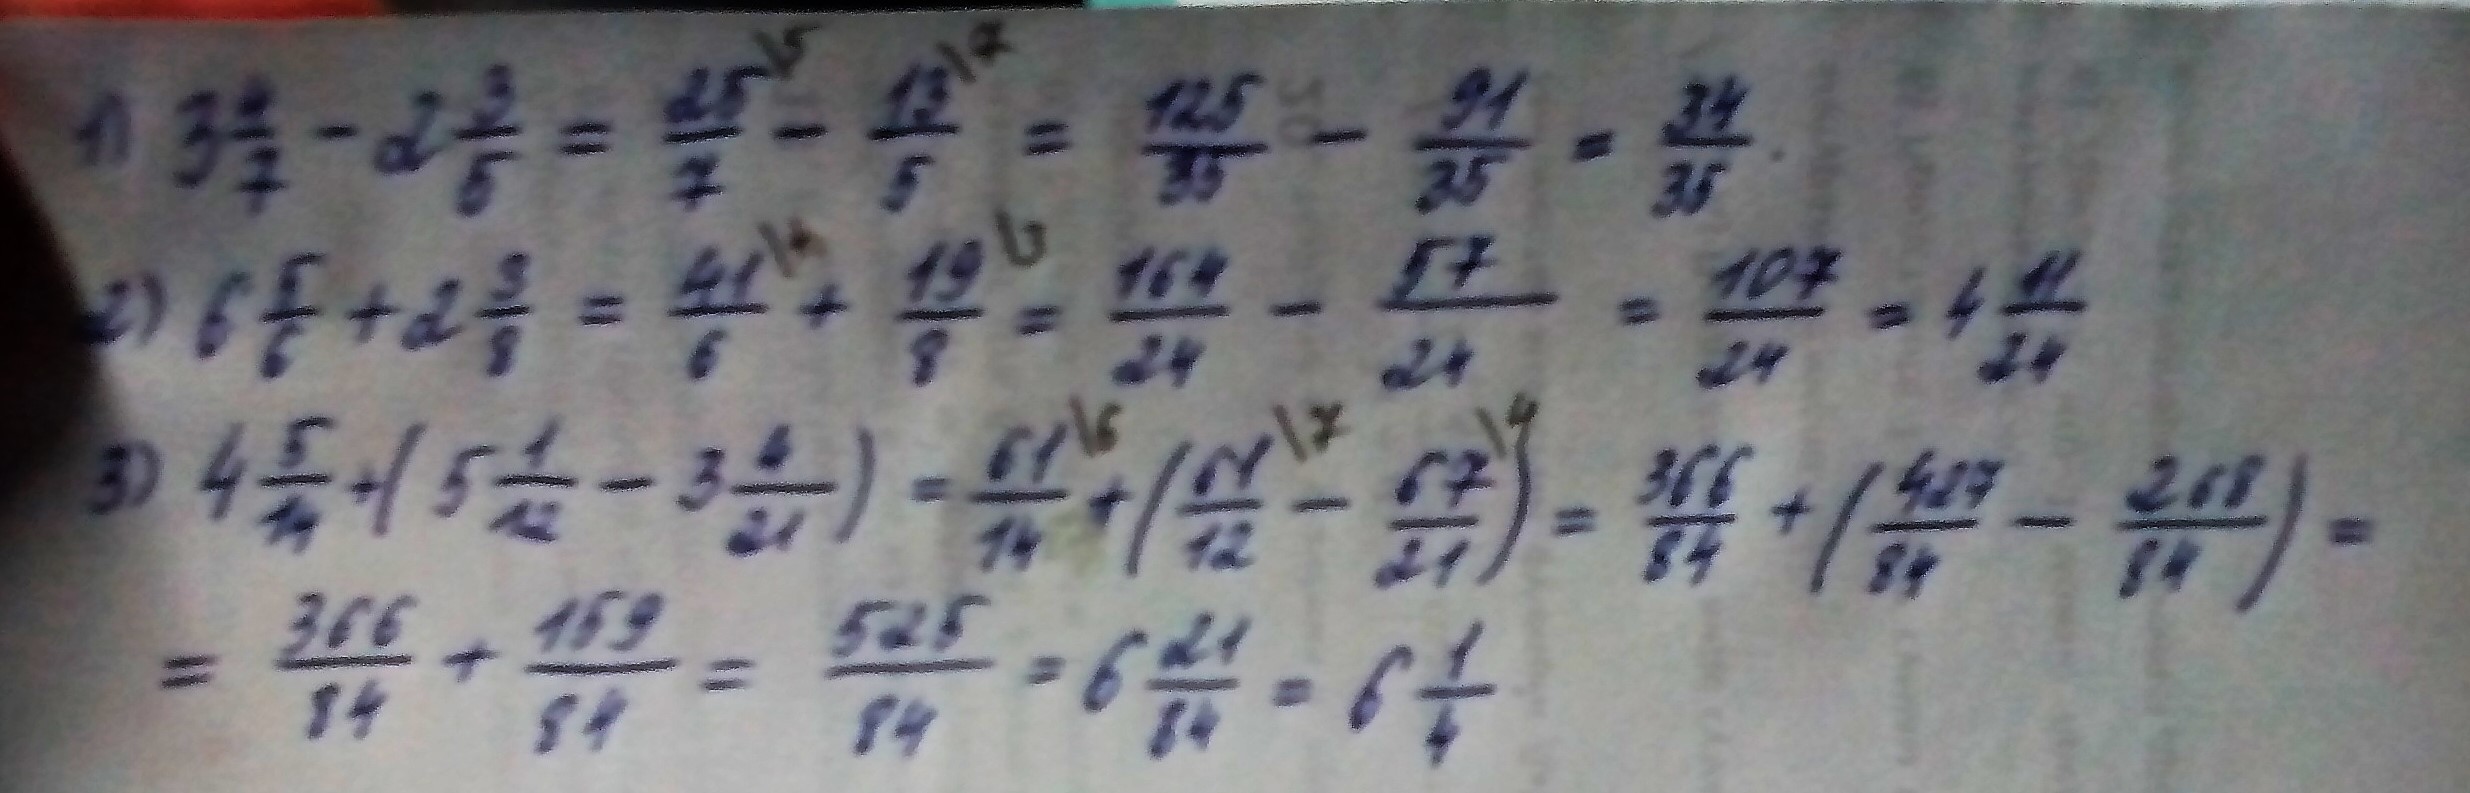 1) 3 4/7 - 2 3/5 = 25/7 \5 - 13/5 \7 = 125/35 - 91/35 = 34/35.
2) 6 5/6 + 2 3/8 = 41/6 \4 + 19/8 \3 = 164/24 - 57/24 = 107/24 = 4 11/24
3) 4 5/14 + ( 5 1/12 - 3 4/21 ) = 61/14 \6 + ( 61/12 \7 - 67/21 \4 ) = 366/84 + ( 427/84 - 268/84 ) =
= 366/84 + 159/84 = 525/84 = 6 21/84 = 6 1/4